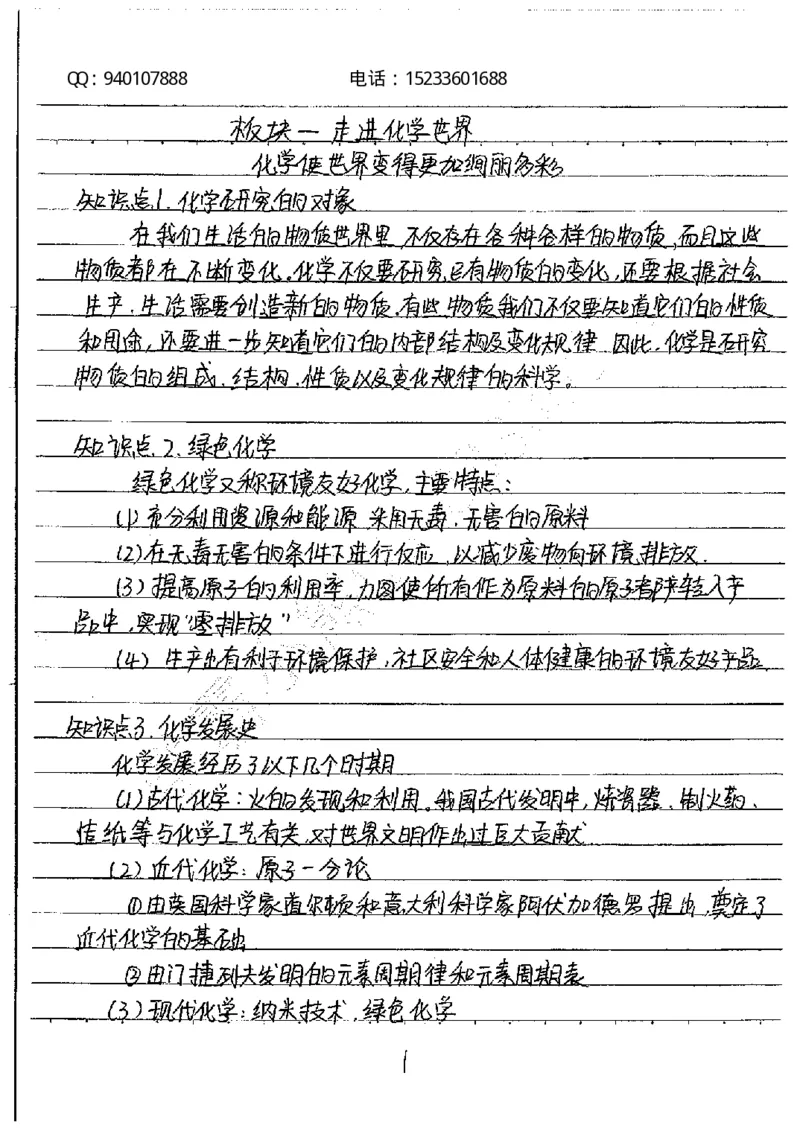 QQ：940107888 电话：15233601688
板块一 走进化学世界
化学使世界变得更加绚丽多彩
知识点1.化学研究的对象
在我们生活的物质世界里，不仅存在各种各样的物质，而且这些
物质都在不断变化。化学不仅要研究已有物质的变化，还要根据社会
生产、生活需要创造新的物质。有些物质我们不仅要知道它们的性质
和用途，还要进一步知道它们的内部结构及变化规律。因此，化学是研究
物质的组成、结构、性质以及变化规律的科学。
知识点.2.绿色化学
绿色化学又称环境友好化学，主要特点：
(1)充分利用资源和能源，采用无毒、无害的原料
(2)在无毒无害的条件下进行反应，以减少废物向环境排放．
(3)提高原子的利用率，力图使所有作为原料的原子都转入产
品中，实现“零排放”
(4) 生产出有利于环境保护，社区安全和人体健康的环境友好产品．
知识点3.化学发展史
化学发展经历了以下几个时期
(1)古代化学：火的发现和利用。我国古代发明中，烧瓷器、制火药、
造纸等与化学工艺有关，对世界文明作出过巨大贡献
(2)近代化学：原子—分论
①由英国科学家道尔顿和意大利科学家阿伏加德罗提出，奠定了
近代化学的基础
②由门捷列夫发明的元素周期律和元素周期表
(3)现代化学：纳米技术、绿色化学
1